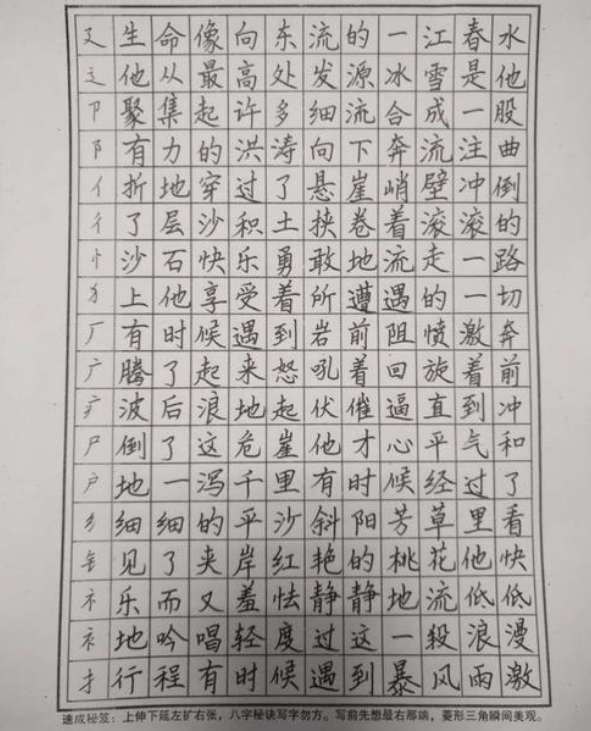 廴生命像向东流的一江春水
辶他从最高处发源冰雪是他
卩聚集起许多细流合成一股
阝有力的洪涛向下奔流注曲
亻折地穿过了悬崖峭壁冲倒
彳了层沙积土挟卷着滚滚的
忄沙石快乐勇敢地流走一路
犭上他享受着所遭遇的一切
厂有时候遇到岩前阻愤激奔
广腾了起来怒吼着回旋着前
疒波后浪地起伏催逼直到冲
尸倒了这危崖他才心平气和
户地一泻千里有时候经过了
纟细细的平沙斜阳芳草里看
钅见了夹岸红艳的桃花他快
礻乐而又羞怯静静地流低低
衤地吟唱轻度过这一段浪漫
扌行程有时候遇到暴风雨激
速成秘笈：上伸下延左扩右张，八字秘诀写字勿方。写前先想最右那端，菱形三角瞬间美观。